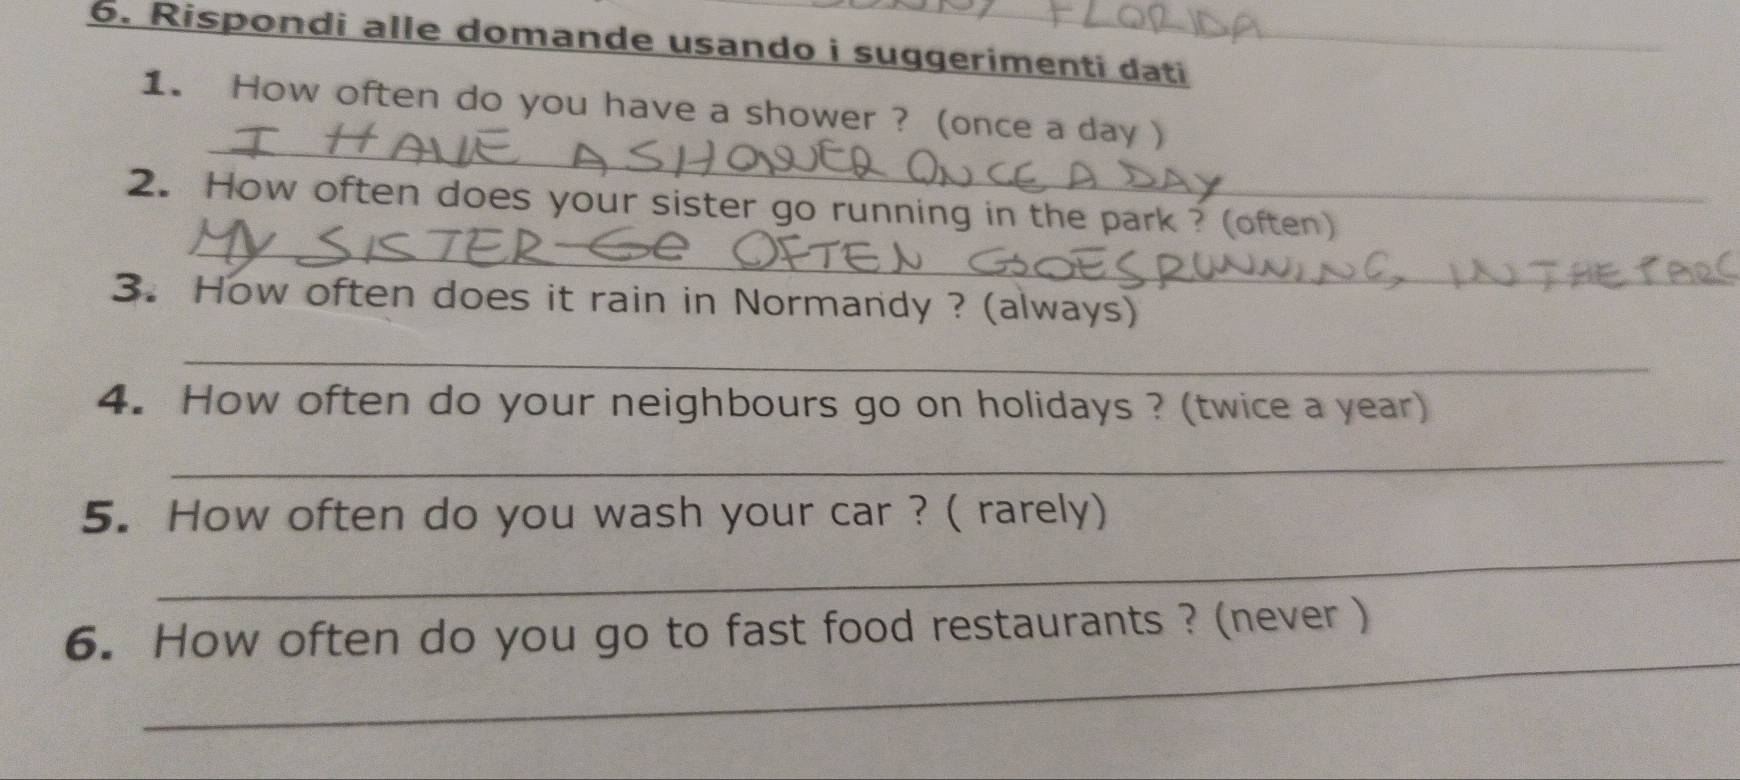 FLORIDA
6. Rispondi alle domande usando i suggerimenti dati
1. How often do you have a shower ? (once a day )
I HAVE A SHOWER ONCE A DAY
2. How often does your sister go running in the park ? (often)
MY SISTER Go OFTEN GOES RUNNING IN THE PARC
3. How often does it rain in Normandy ? (always)
4. How often do your neighbours go on holidays ? (twice a year)
5. How often do you wash your car ? ( rarely)
6. How often do you go to fast food restaurants ? (never )